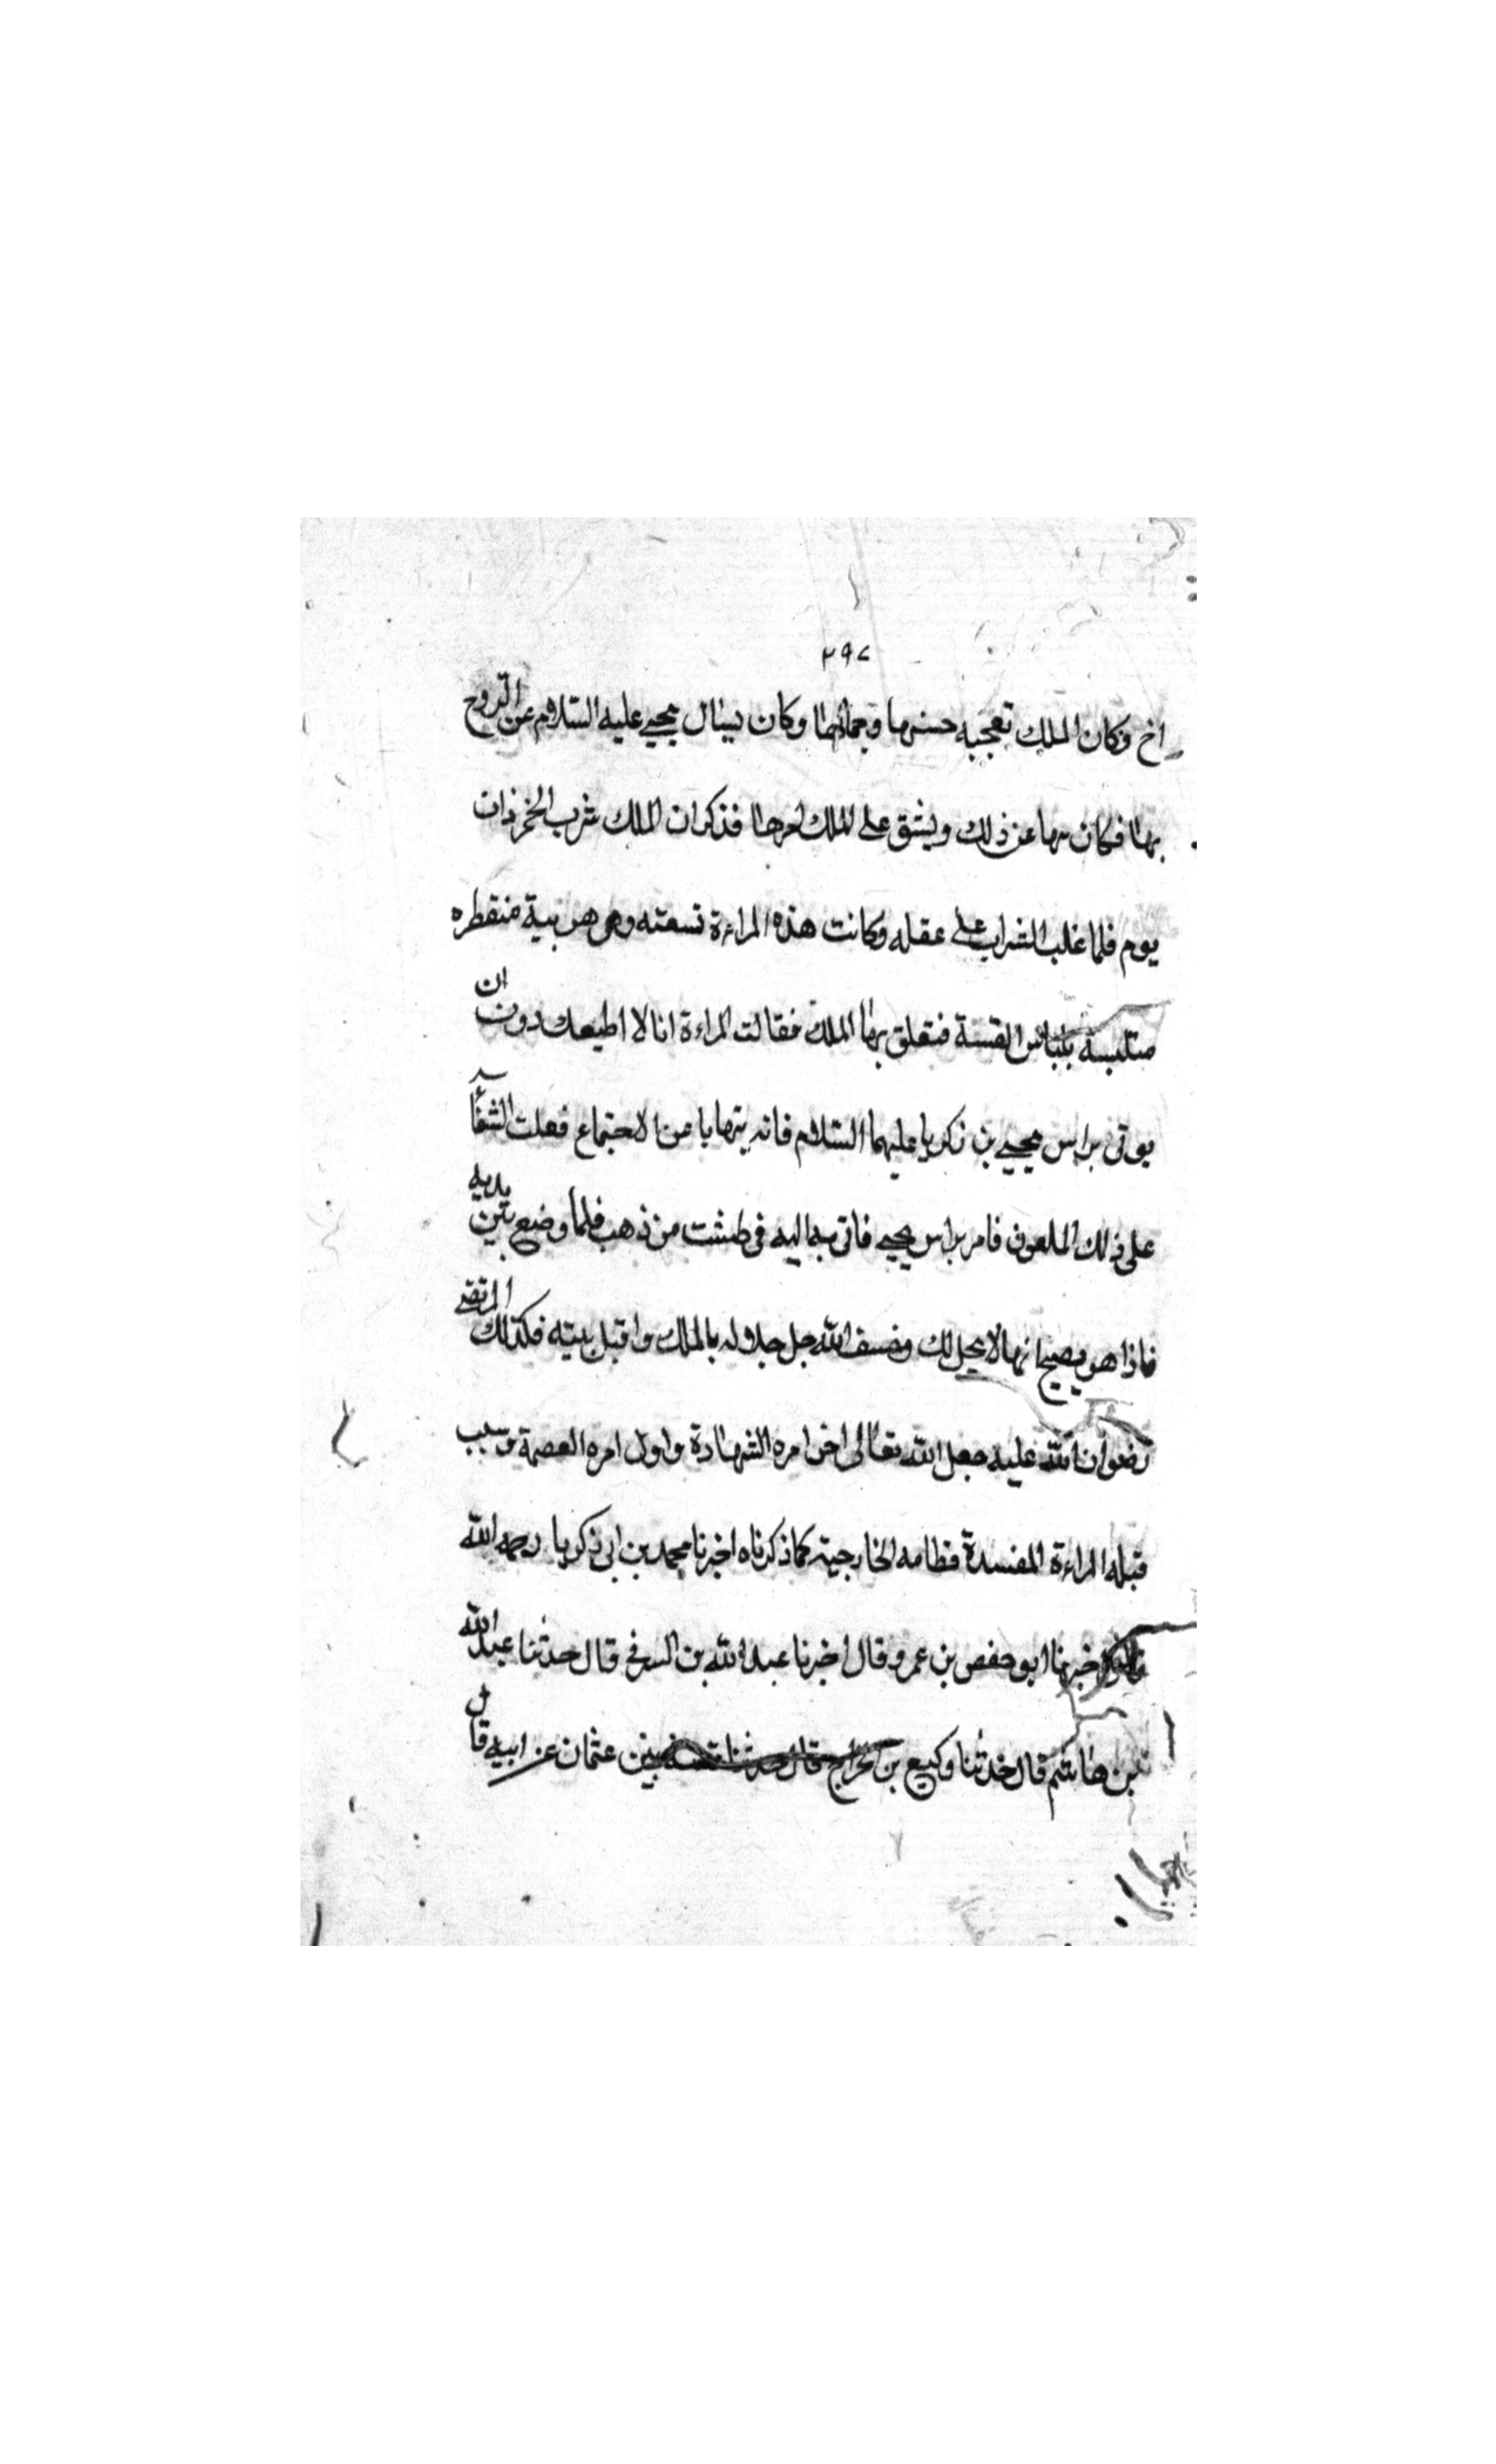 ٢٩٧
اخ وكان الملك تعجبه حسنها وجمالها وكان يسال يحيى عليه السلام عن التزوج
بها فكان ينهاه عن ذلك ويشق على الملك امرها فذكر ان الملك شرب الخمر ذات
يوم فلما غلب الشراب على عقله وكانت هذه المراءة تسعته وهي
متلبسة بلباس الفتنة فتعلق بها الملك فقالت المراءة انا لا اطيعك دون ان
يوتى براس يحيى بن زكريا عليهما السلام فانه ينهابا عن الاجتماع فعلت الشقا
على ذلك الملعون فامر براس يحيى فاتى بها اليه في طشت من ذهب فلما وضع بين يديه
فاذا هو يصيح انها لا يحل لك وخسف الله جل جلاله بالملك واقبل بيته فكذلك المرتضى
رضوان الله عليه جعل الله تعالى اخر امره الشهادة واول امره العصمة وسبب
قبله المراءة المفسدة قطامه الخارجية كما ذكرناه اخبرنا محمد بن ابي زكريا رحمه الله
قال اخبرنا ابو حفص بن عمرو قال اخبرنا عبد الله بن قال حدثنا عبد الله
بن هاشم قال حدثنا وكيع بن الجراح قال حدثنا عثمان عن ابيه قال